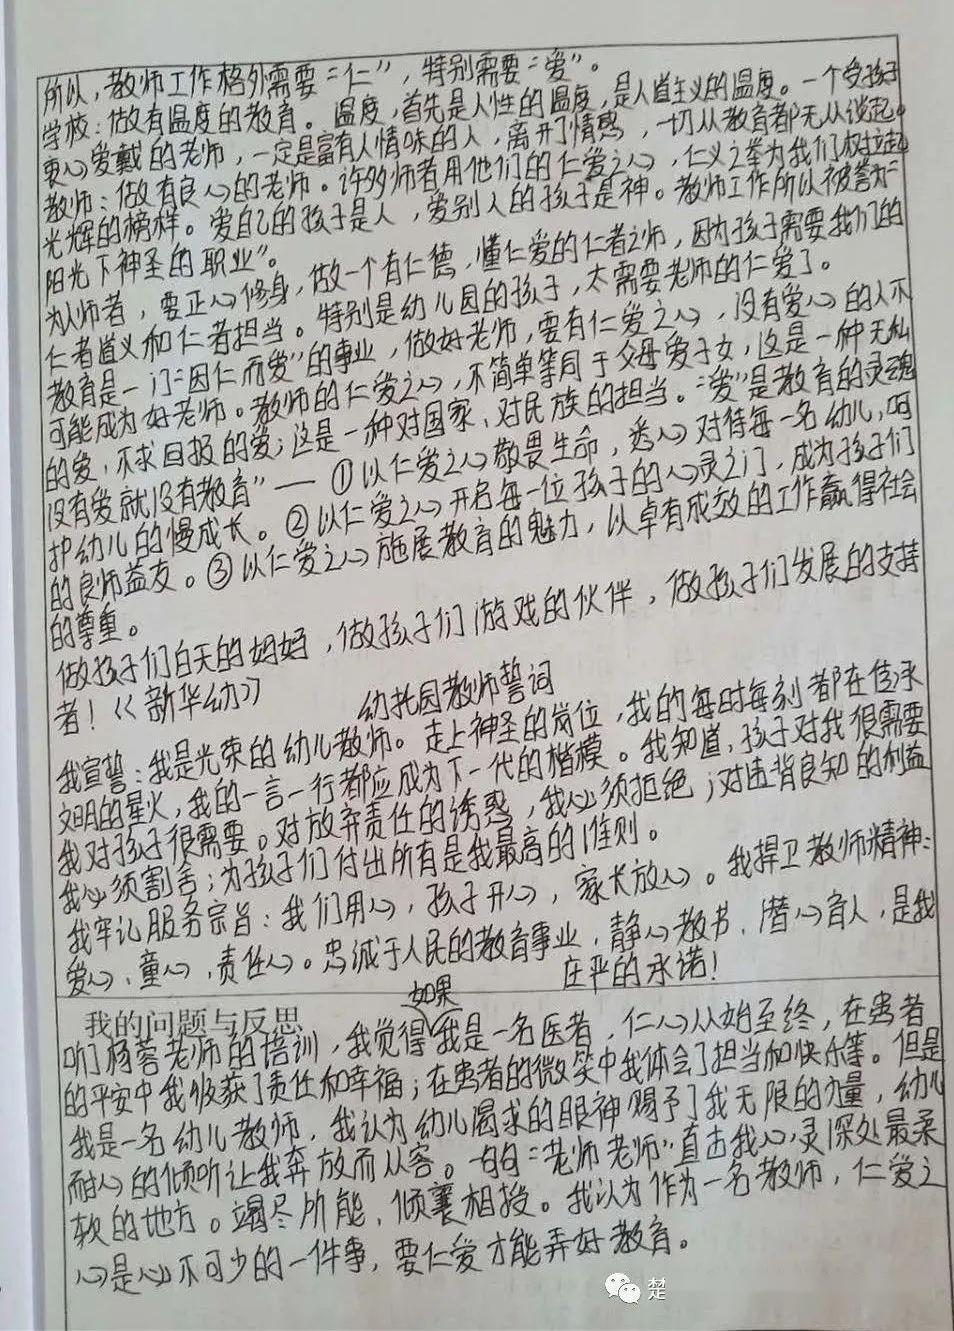 所以，教师工作格外需要“仁”，特别需要“爱”。
学校：做有温度的教育。温度，首先是人性的温度，是人道主义的温度。一个受孩子
衷心爱戴的老师，一定是富有人情味的人，离开了情感，一切从教育都无从谈起。
教师：做有良心的老师。许多师者用他们的仁爱之心，仁义之举为我们树立起
光辉的榜样。爱自己的孩子是人，爱别人的孩子是神。教师工作所以被誉为“
阳光下神圣的职业”。
为人师者，要正心修身，做一个有仁德，懂仁爱的仁者之师，因为孩子需要我们的
仁者道义和仁者担当。特别是幼儿园的孩子，太需要老师的仁爱了。
教育是一门“因仁而爱”的事业，做好老师，要有仁爱之心，没有爱心的人不
可能成为好老师。教师的仁爱之心，不简单等同于父母爱子女，这是一种无私
的爱，不求回报的爱；这是一种对国家、对民族的担当。“爱”是教育的灵魂
没有爱就没有教育”——①以仁爱之心敬畏生命，悉心对待每一名幼儿，呵
护幼儿的慢成长。②以仁爱之心开启每一位孩子的心灵之门，成为孩子们
的良师益友。③以仁爱之心施展教育的魅力，以卓有成效的工作赢得社会
的尊重。
做孩子们白天的妈妈，做孩子们游戏的伙伴，做孩子们发展的支持
者！《新华幼》
幼托园教师誓词
我宣誓：我是光荣的幼儿教师。走上神圣的岗位，我的每时每刻都在传承
文明的星火，我的一言一行都应成为下一代的楷模。我知道，孩子对我很需要
我对孩子很需要。对放弃责任的诱惑，我必须拒绝；对违背良知的利益
我必须割舍；为孩子们付出所有是我最高的准则。
我牢记服务宗旨：我们用心，孩子开心，家长放心。我捍卫教师精神：
爱心、童心、责任心。忠诚于人民的教育事业，静心教书、潜心育人，是我
庄严的承诺！
我的问题与反思
听杨蓉老师的培训，我觉得如果我是一名医者，仁心从始至终，在患者
的平安中我收获了责任和幸福；在患者的微笑中我体会了担当和快乐等。但是
我是一名幼儿教师，我认为幼儿渴求的眼神赐予了我无限的力量，幼儿
耐心的倾听让我奔放而从容。一句句“老师老师”直击我心灵深处最柔
软的地方。竭尽所能，倾囊相授。我认为作为一名教师，仁爱之
心是必不可少的一件事，要仁爱才能弄好教育。
楚